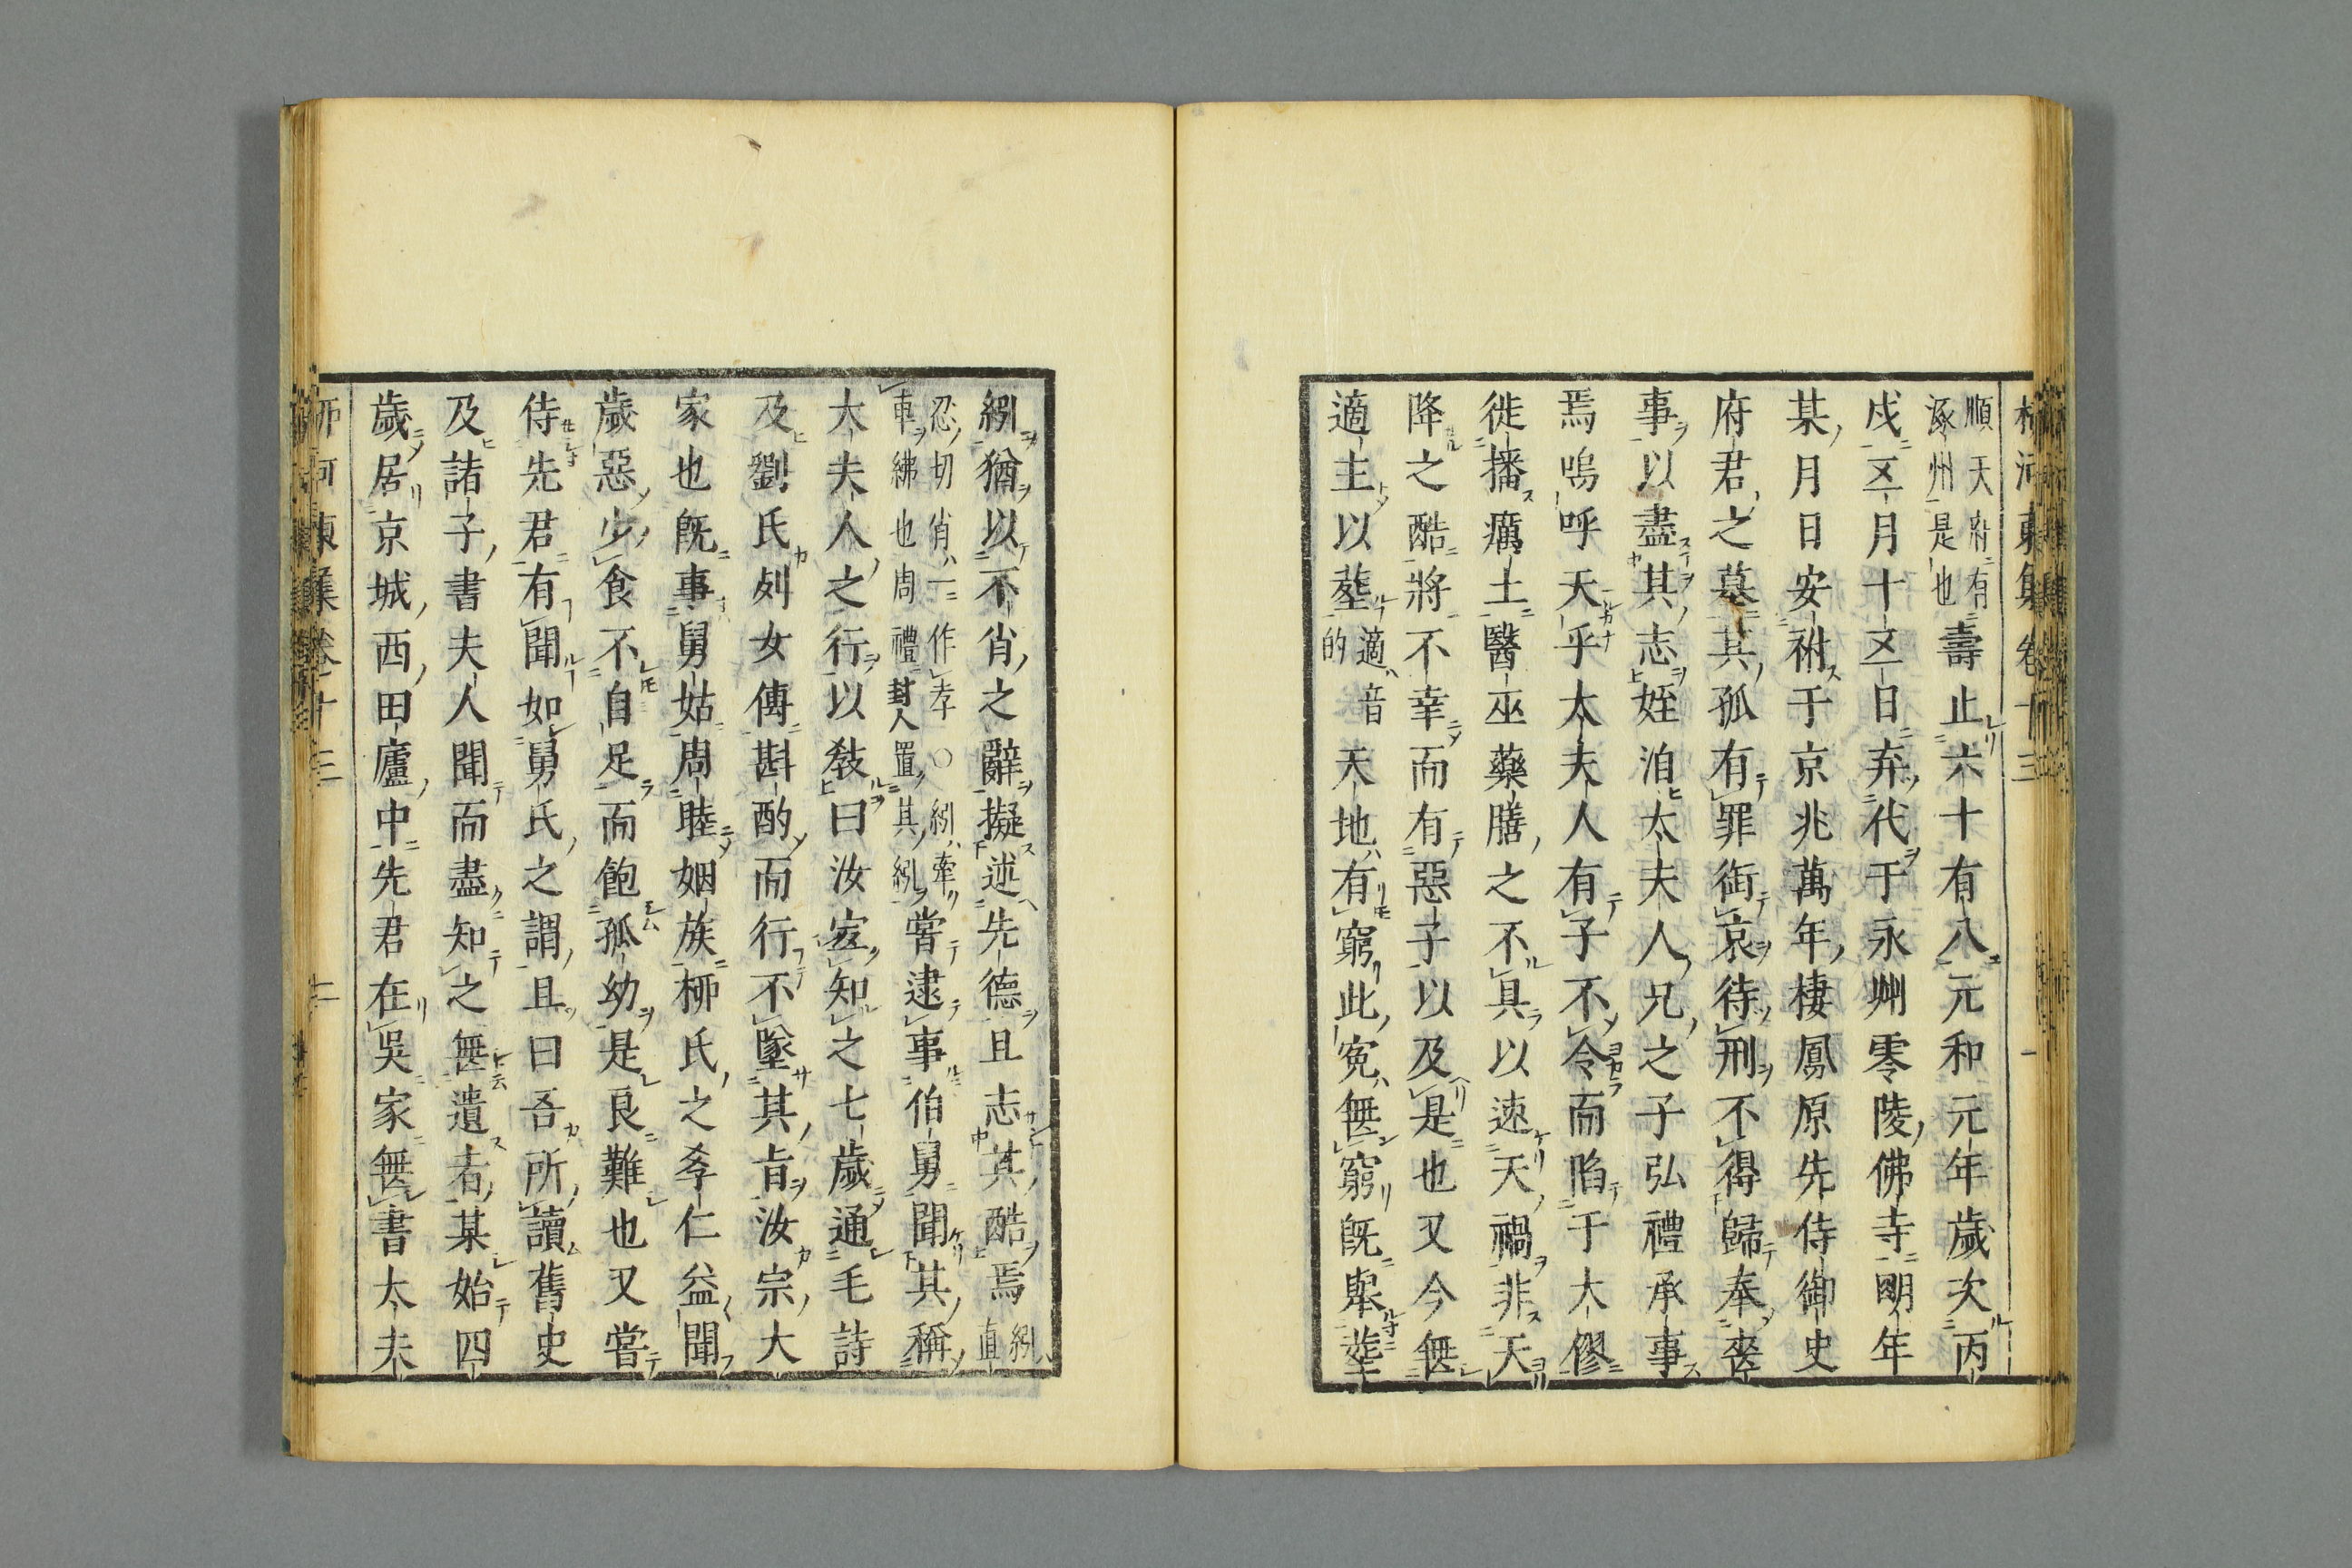 柳河東集卷十三 一
順天府有
涿州是也
壽止六十有八元和元年歲次丙
戌五月十五日弃代于永州零陵佛寺明年
某月日安祔于京兆萬年棲鳳原先侍御史
府君之墓其孤有罪銜哀待刑不得歸奉喪
事以盡其志姪洎太夫人兄之子弘禮承事
焉嗚呼天乎太夫人有子不令而陷于大僇
徙播癘土醫巫藥膳之不具以速天禍非天
降之酷將不幸而有惡子以及是也又今無
適主以塟
適音
的
天地有窮此寃無窮既舉塟
紖猶以不肖之辭擬述先德且志其酷焉
紖直
忍切肖一作孝○紖牽
車紼也周禮封人置其紖
嘗逮事伯舅聞其稱
太夫人之行以教曰汝宜知之七歲通毛詩
及劉氏列女傳斟酌而行不墜其㫖汝宗大
家也既事舅姑周睦姻族柳氏之孝仁益聞
歲惡少食不自足而飽孤幼是良難也又嘗
侍先君有聞如舅氏之謂且曰吾所讀舊史
及諸子書夫人聞而盡知之無遺者某始四
歲居京城西田廬中先君在吳家無書太夫
柳河東集卷十三 二